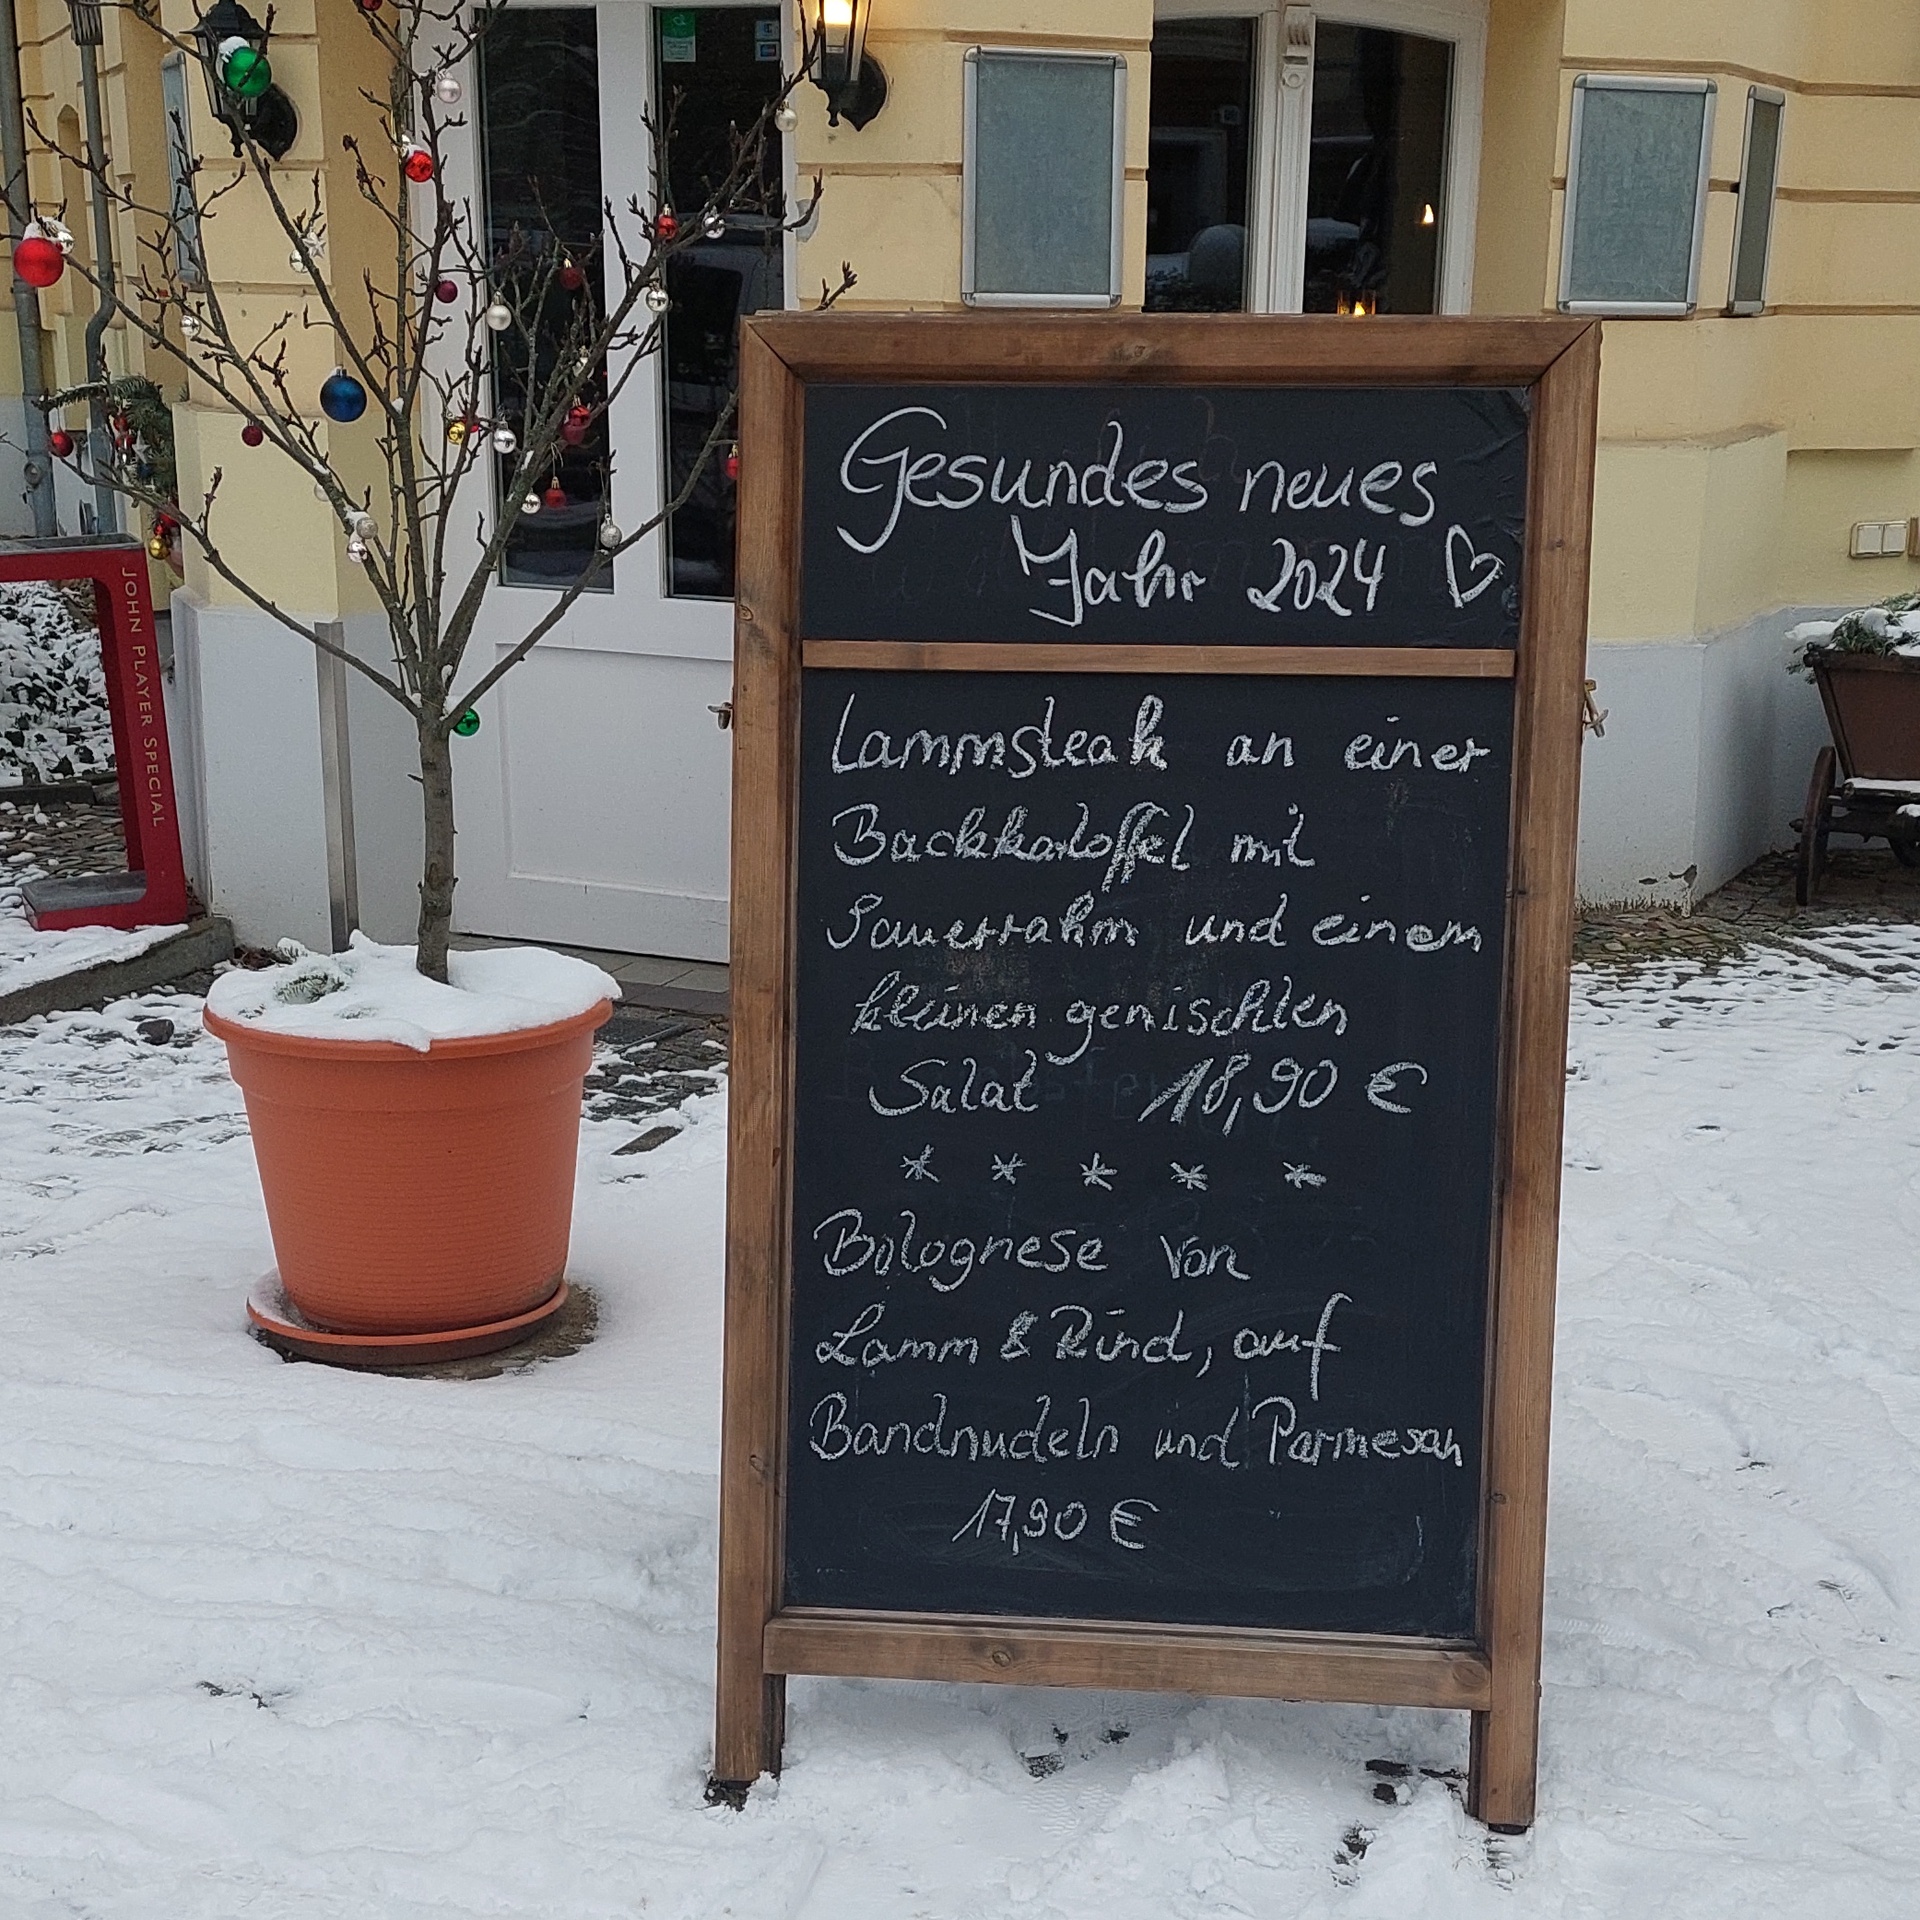 Gesundes neues
Jahr 2024 ♡
Lammsteak an einer
Backkartoffel mit
Sauerrahm und einem
kleinen gemischten
Salat 18,90 €
* * * * *
Bolognese von
Lamm & Rind, auf
Bandnudeln und Parmesan
17,90 €
JOHN PLAYER SPECIAL